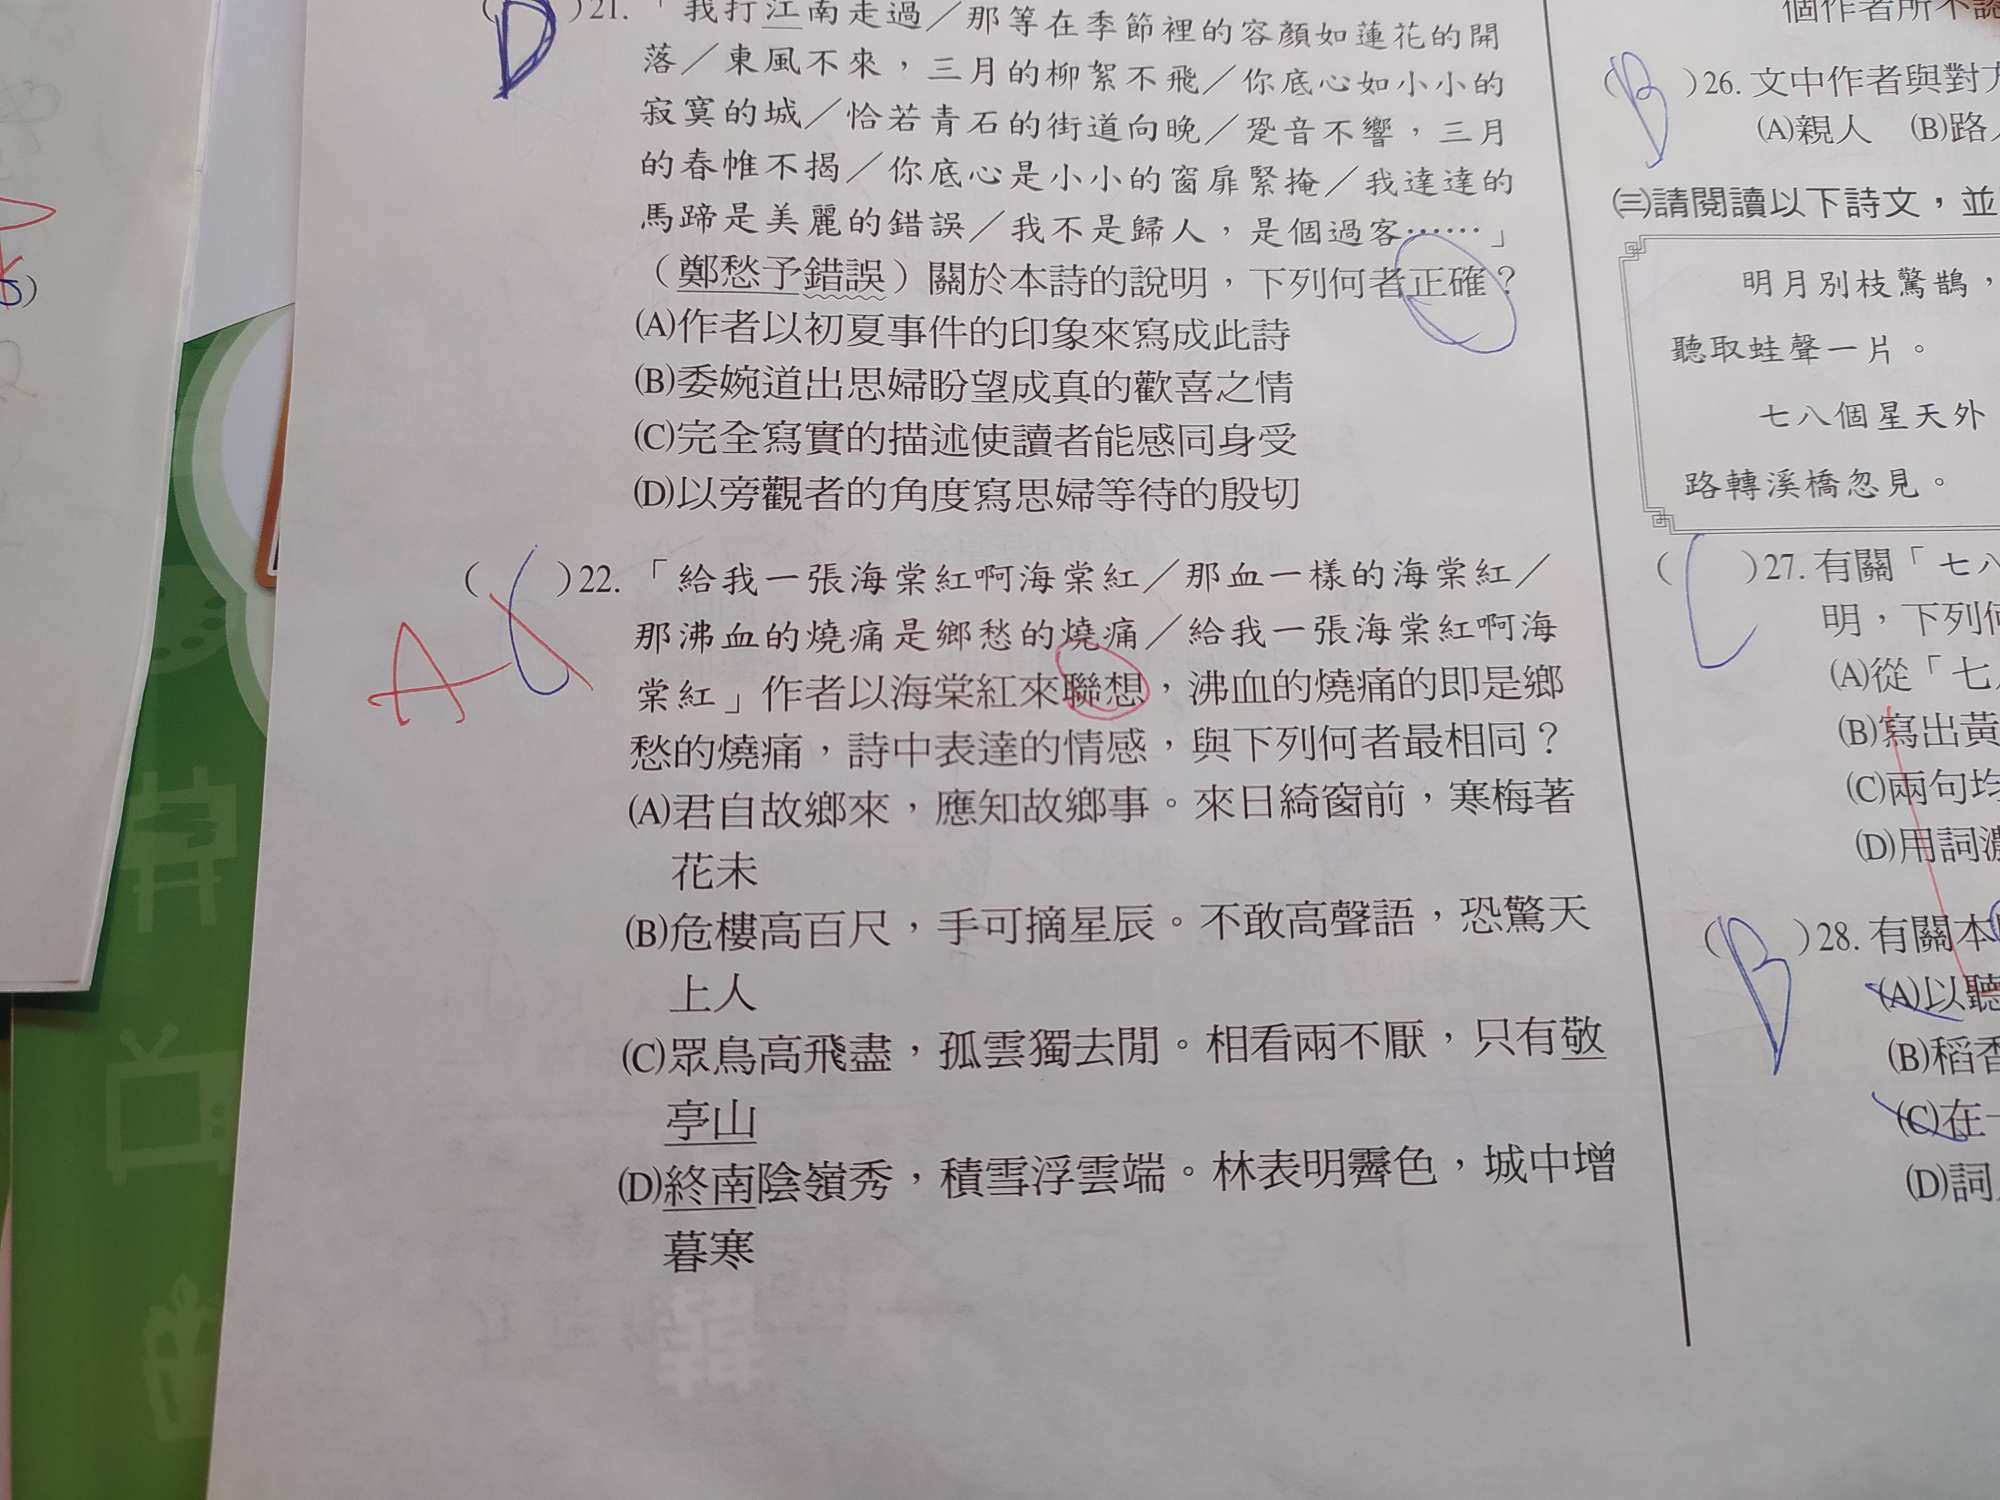 D )21.「我打江南走過／那等在季節裡的容顏如蓮花的開
落／東風不來，三月的柳絮不飛／你底心如小小的
寂寞的城／恰若青石的街道向晚／跫音不響，三月
的春帷不揭／你底心是小小的窗扉緊掩／我達達的
馬蹄是美麗的錯誤／我不是歸人，是個過客……」
（鄭愁予錯誤）關於本詩的說明，下列何者正確？
(A)作者以初夏事件的印象來寫成此詩
(B)委婉道出思婦盼望成真的歡喜之情
(C)完全寫實的描述使讀者能感同身受
(D)以旁觀者的角度寫思婦等待的殷切
A ( C )22.「給我一張海棠紅啊海棠紅／那血一樣的海棠紅／
那沸血的燒痛是鄉愁的燒痛／給我一張海棠紅啊海
棠紅」作者以海棠紅來聯想，沸血的燒痛的即是鄉
愁的燒痛，詩中表達的情感，與下列何者最相同？
(A)君自故鄉來，應知故鄉事。來日綺窗前，寒梅著
花未
(B)危樓高百尺，手可摘星辰。不敢高聲語，恐驚天
上人
(C)眾鳥高飛盡，孤雲獨去閒。相看兩不厭，只有敬
亭山
(D)終南陰嶺秀，積雪浮雲端。林表明霽色，城中增
暮寒
個作者所不認
( B )26. 文中作者與對方
(A)親人 (B)路人
㈢請閱讀以下詩文，並
明月別枝驚鵲，
聽取蛙聲一片。
七八個星天外
路轉溪橋忽見。
( C )27. 有關「七八
明，下列何
(A)從「七八
(B)寫出黃
(C)兩句均
(D)用詞濃
( B )28. 有關本
(A)以聽
(B)稻香
(C)在一
(D)詞